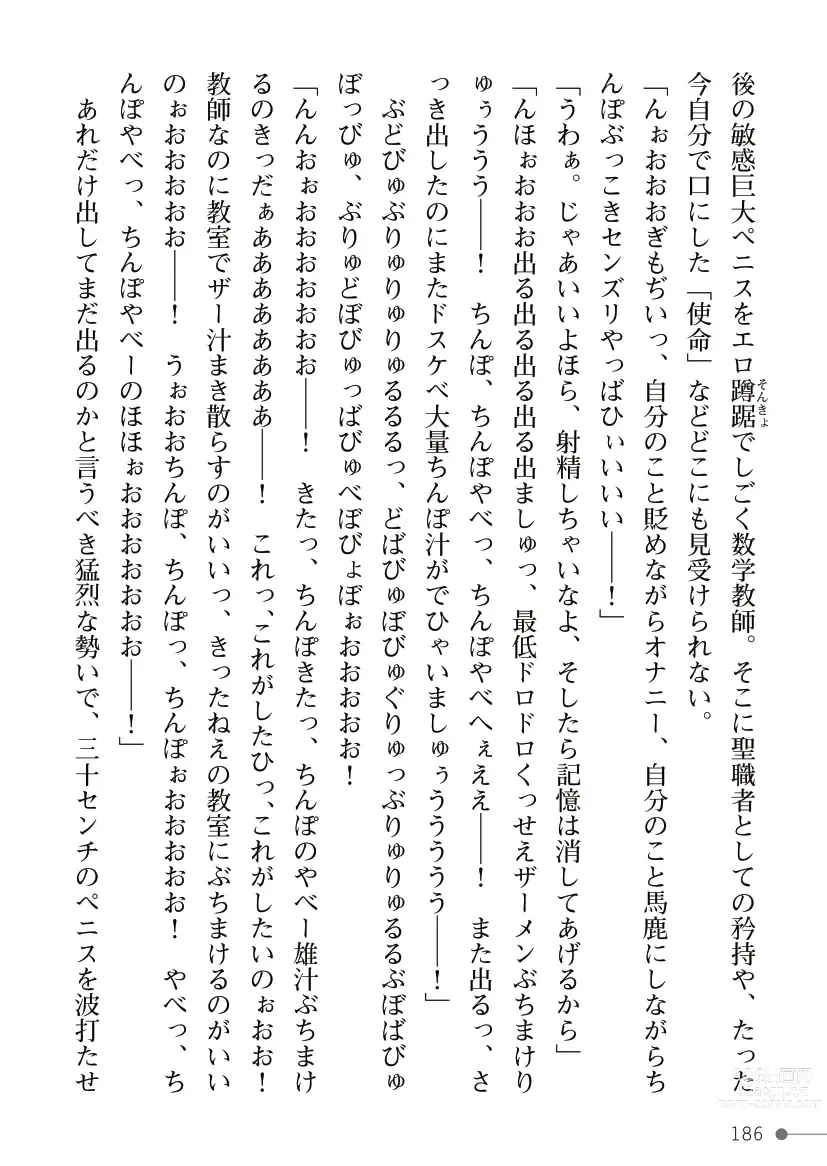 後の敏感巨大ペニスをエロ蹲踞でしごく数学教師。そこに聖職者としての矜持や、たった
そんきょ
今自分で口にした「使命」などどこにも見受けられない。
「んぉおおおぎもぢいっ、自分のこと貶めながらオナニー、自分のこと馬鹿にしながらち
んぽぶっこきセンズリやっばひぃいいい――！」
「うわぁ。じゃあいいよほら、射精しちゃいなよ、そしたら記憶は消してあげるから」
「んほぉおおお出る出る出る出る出ましゅっ、最低ドロドロくっせえザーメンぶちまけり
ゅぅううう――！　ちんぽ、ちんぽやべっ、ちんぽやべへぇええ――！　また出るっ、さ
っき出したのにまたドスケベ大量ちんぽ汁がでひゃいましゅぅううううう――！」
ぶどびゅぶりゅりゅりゅるるるっ、どばびゅぼびゅぐりゅっぶりゅりゅるるぶぼばびゅ
ぼっびゅ、ぶりゅどぼびゅっばびゅべぼびょぼぉおおおおお！
「んんおぉおおおおおおお――！　きたっ、ちんぽきたっ、ちんぽのやべー雄汁ぶちまけ
るのきっだぁああああああああ――！　これっ、これがしたひっ、これがしたいのぉおお！
教師なのに教室でザー汁まき散らすのがいいっ、きったねえの教室にぶちまけるのがいい
のぉおおおおお――！　うぉおおちんぽ、ちんぽっ、ちんぽぉおおおおお！　やべっ、ち
んぽやべっ、ちんぽやべーのほほぉおおおおおおお――！」
あれだけ出してまだ出るのかと言うべき猛烈な勢いで、三十センチのペニスを波打たせ
186